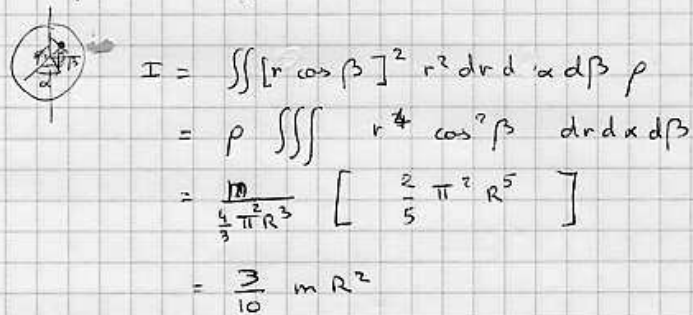 I = ∬[r cos β]² r² dr d α dβ ρ
= ρ ∭ r⁴ cos² β dr d α dβ
= m / (4/3 π² R³) [ 2/5 π² R⁵ ]
= 3/10 m R²